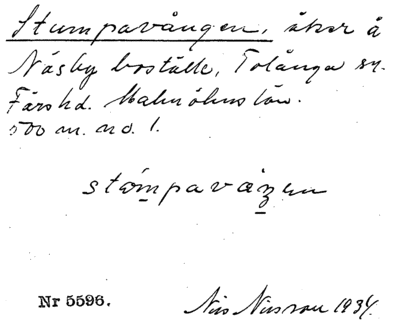 Stumpavången, åker å
Näsby boställe, Tolånga sn.
Färs hd. Malmöhus län.
500 m. no 1.
stom̲pavåz̲en
Nr 5596.
Nils Nilsson 1934.